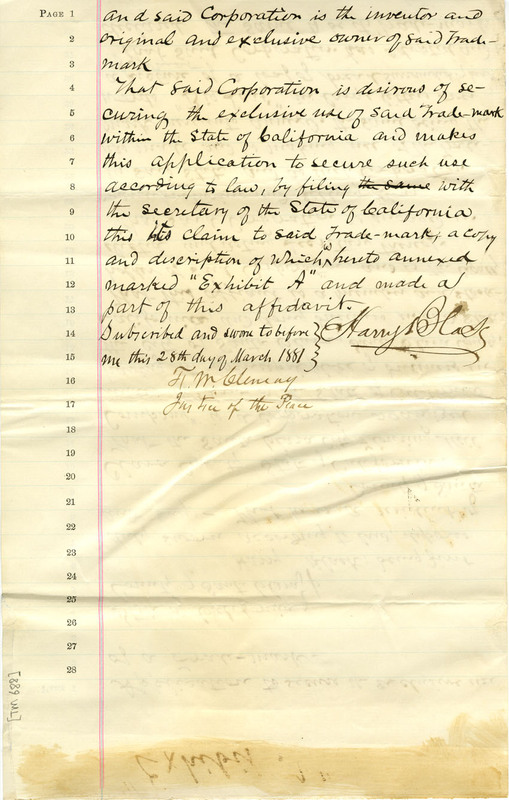 PAGE 1 and said Corporation is the inventor and
2 original and exclusive owner of said Trade-
3 mark
4 That said Corporation is desirous of se-
5 curing the exclusive use of said Trade-mark
6 within the State of California and makes
7 this application to secure such use
8 according to law, by filing the same with
9 the secretary of the State of California
10 this its claim to said Trade-mark, a copy
11 and description of which is hereto annexed
12 marked "Exhibit A" and made a
13 part of this affidavit.
14 Subscribed and sworn to before } Harry Black
15 me this 28th day of March 1881 }
16
17 Justice of the Peace
18
19
20
21
22
23
24
25
26
27
28
[TM 688]
Exhibit